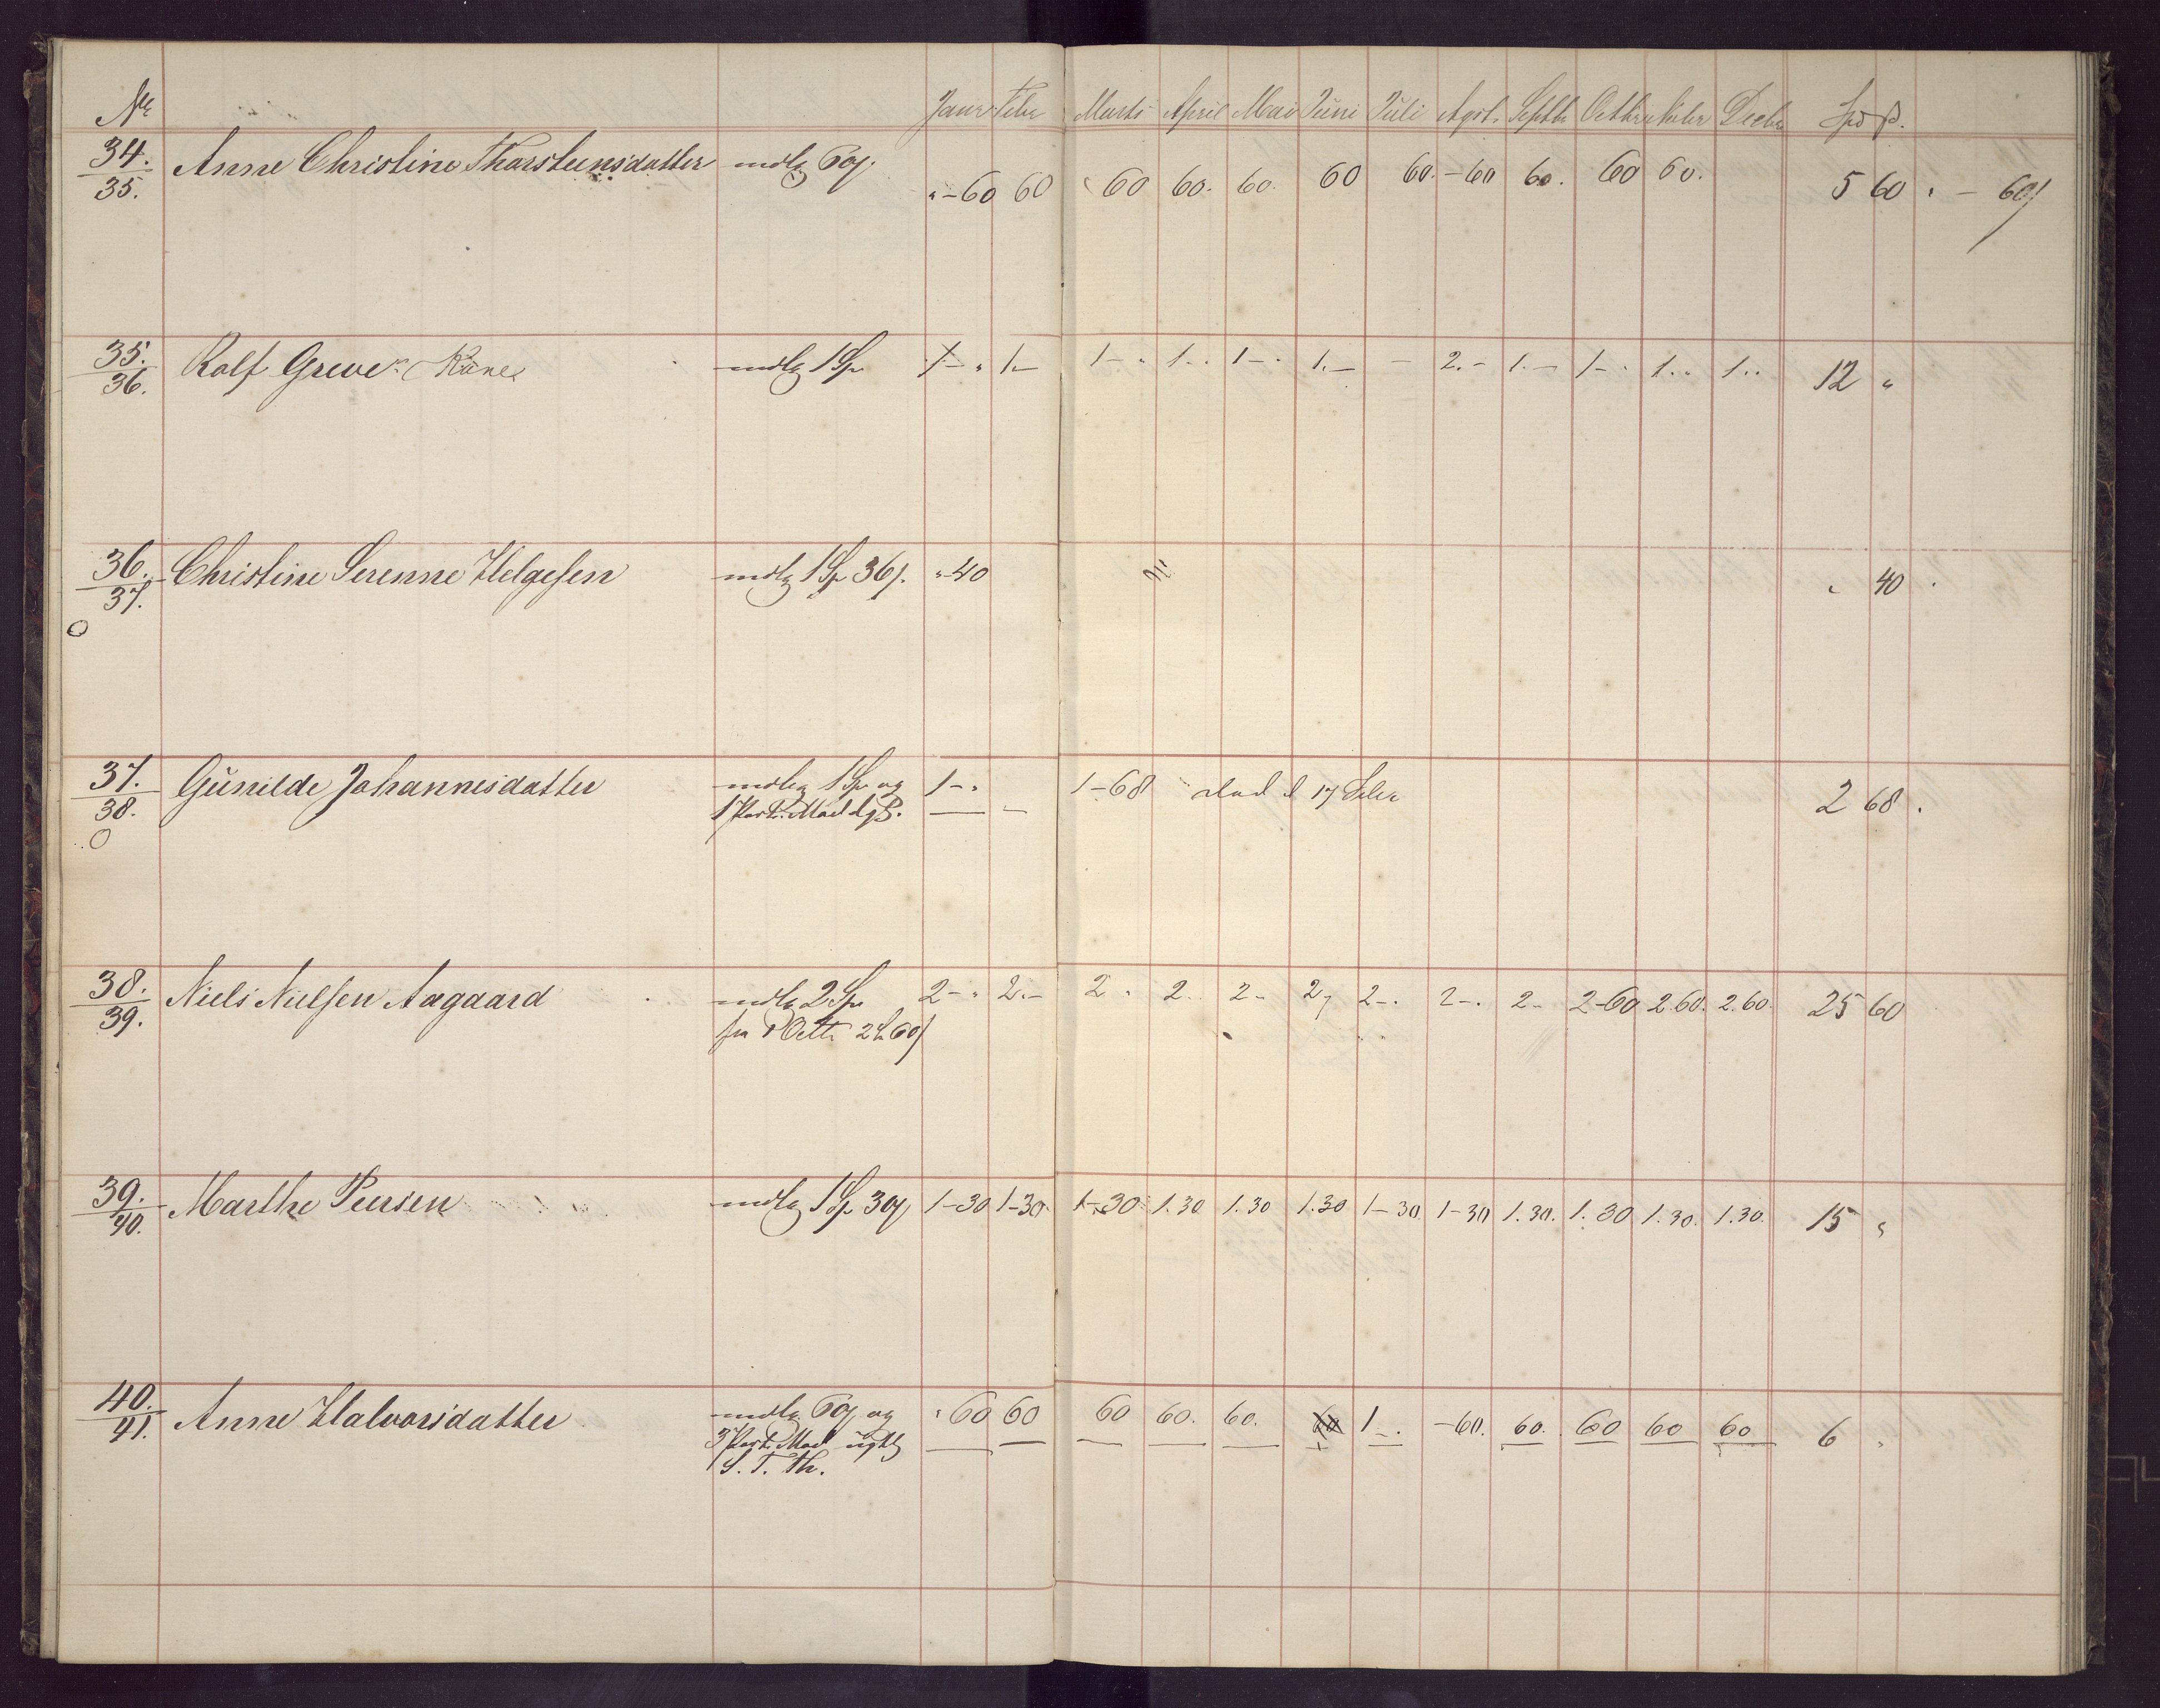 No Janr Febr Marts April Mai Juni Juli Agst. Septbr Octbr Novbr Decbr Spd ß.
34. Anne Christine Thorsteinsdatter mdlg 60ß. " - 60 60 60 60. 60. 60 60. - 60 60. 60 60. 5 60 " - 60ß
35.
35. Rolf Greve Kone mdlg 1 Sp 1 - " 1. - 1 - " 1. . 1 - . 1. - - 2. - 1. - 1 - . 1. . 1. . 12 "
36.
36. Christine Serenne Helgesen mdlg 1 Sp 36ß. " 40 " 40
37.
O
37. Gunilde Johannesdatter mdlg 1 Sp og 1 - . 1 - 68 død d 17 2 68.
38. 1 Port. Mad dgl. — —
O
38. Niels Nielsen Aagaard mdlg 2 Sp 2 - " 2. - 2 " 2. . 2 - 2 - 2 - . 2 - . 2 - 2 - 60 2. 60. 2. 60. 25 60
39. fra Octb 2 Sp 60ß
39. Marthe Peersen mdlg 1 Sp 30ß 1 - 30 1 - 30. 1 - 30 1. 30 1. 30 1. 30 1 - 30 1 - 30 1. 30. 1. 30 1. 30. 1. 30. 15 "
40.
40. Anne Halvorsdatter mdlg 60ß og " 60 60 60 60. 60. 60 1 - . - 60. 60. 60 60 60 6 "
41. 3 Port. Mad ugtl
S. T. Th.